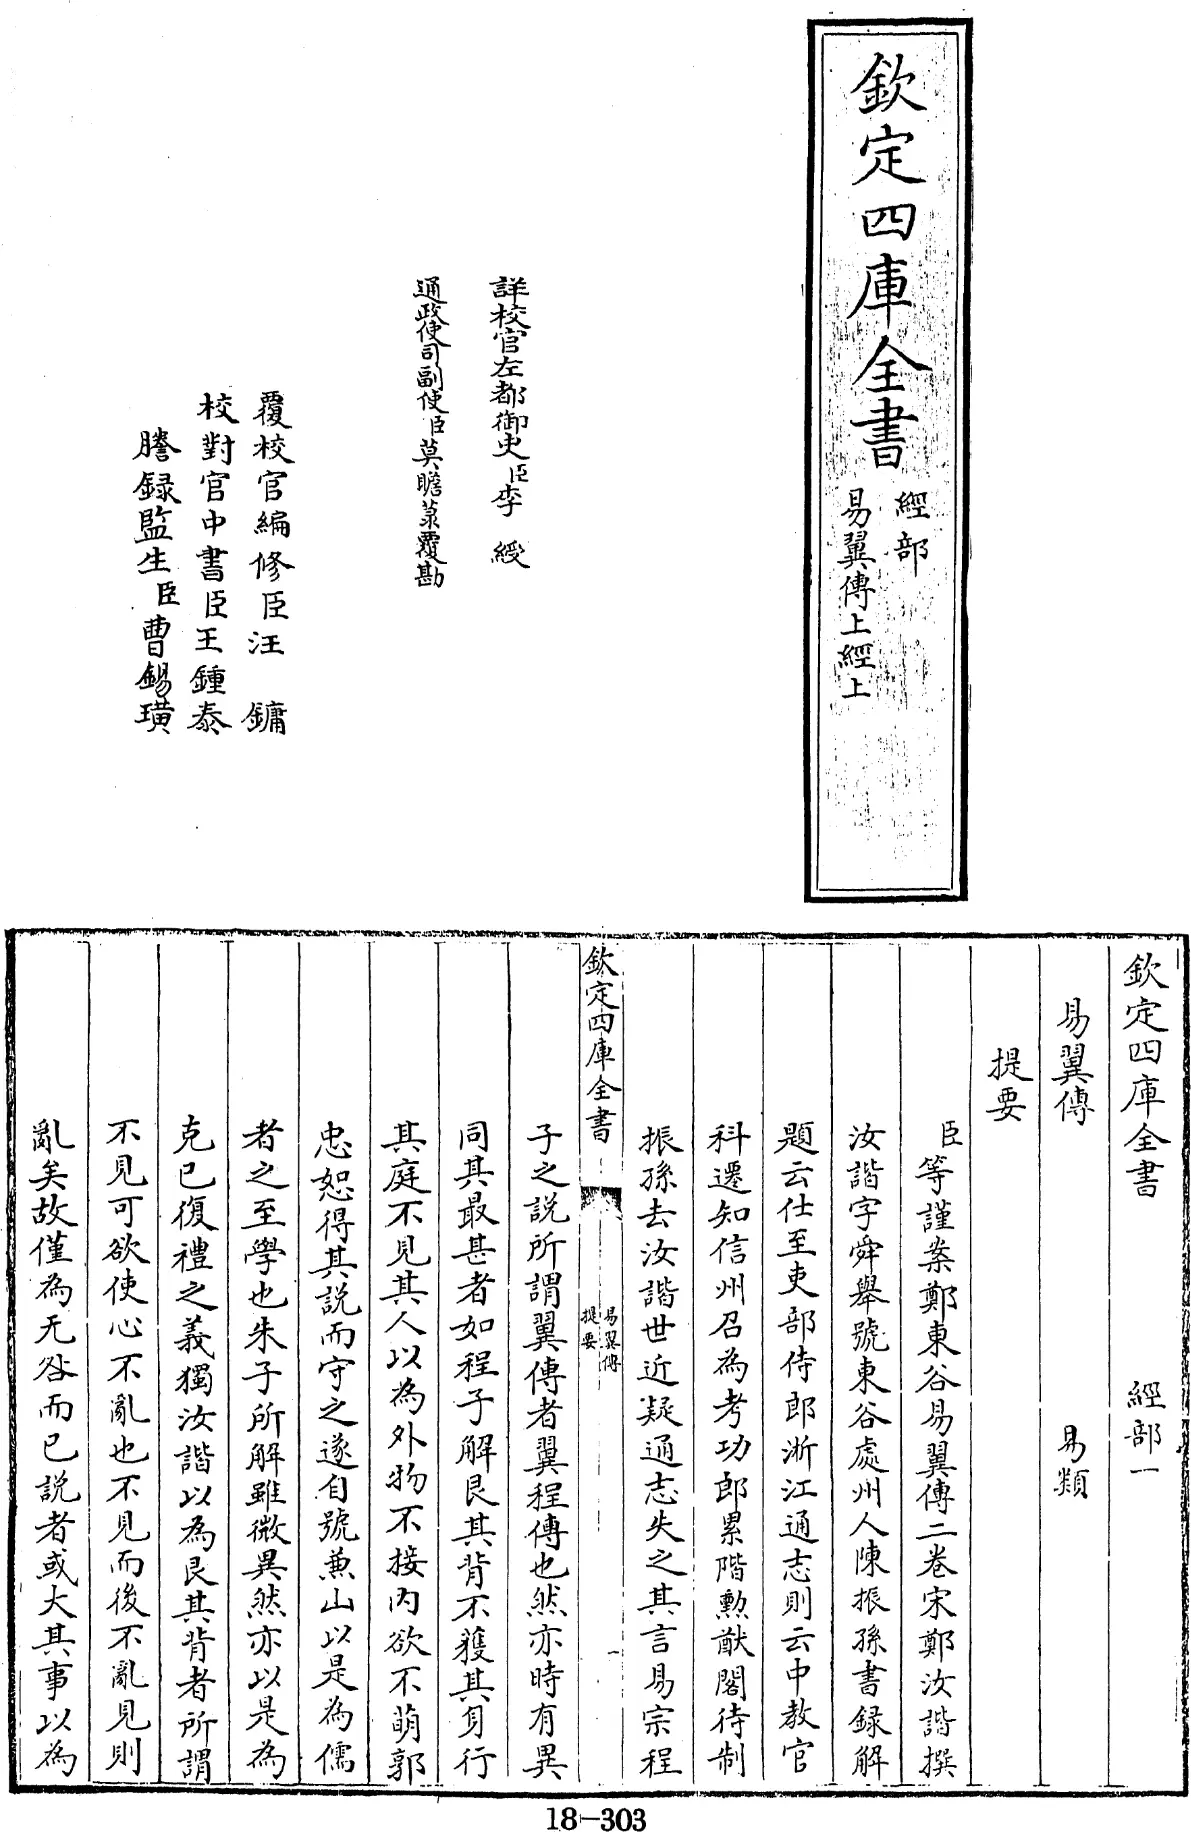 欽定四庫全書
經部
易翼傳上經上
詳校官左都御史臣李 綬
通政使司副使臣莫瞻菉覆勘
覆校官編修臣汪 鏞
校對官中書臣王鍾泰
謄録監生臣曹錫璜
欽定四庫全書 經部一
易翼傳 易類
提要
臣等謹案鄭東谷易翼傳二卷宋鄭汝諧撰
汝諧字舜舉號東谷處州人陳振孫書録解
題云仕至吏部侍郎淅江通志則云中教官
科遷知信州召為考功郎累階勲猷閣待制
振孫去汝諧世近疑通志失之其言易宗程
欽定四庫全書
易翼傳
提要
一
子之説所謂翼傳者翼程傳也然亦時有異
同其最甚者如程子解艮其背不獲其身行
其庭不見其人以為外物不接内欲不萌郭
忠恕得其説而守之遂自號兼山以是為儒
者之至學也朱子所解雖微異然亦以是為
克已復禮之義獨汝諧以為艮其背者所謂
不見可欲使心不亂也不見而後不亂見則
亂矣故僅為无咎而已説者或大其事以為
18-303